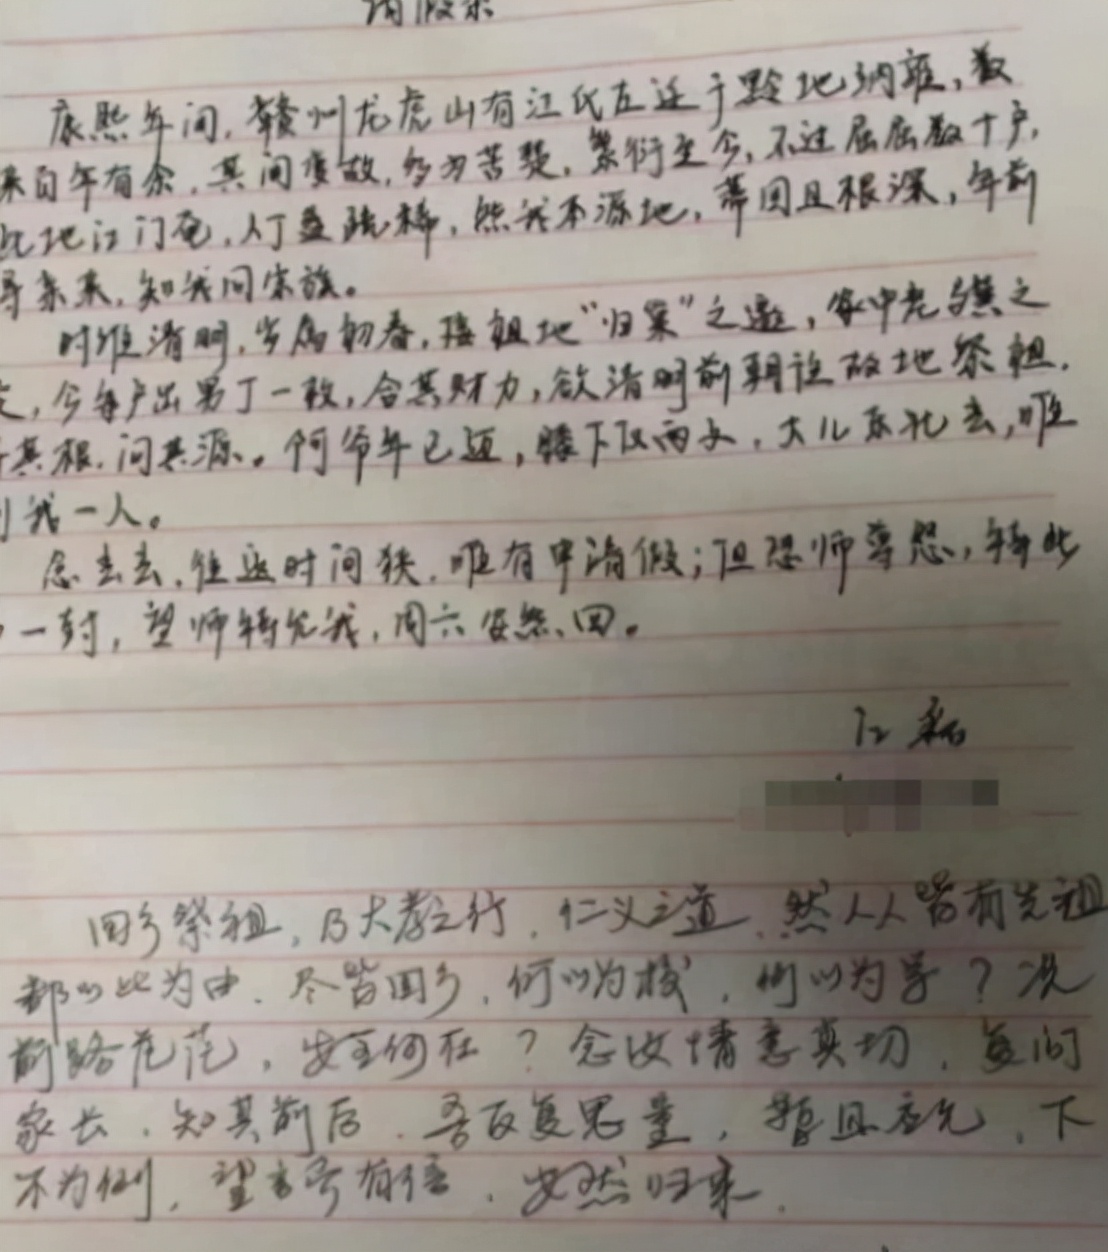 请假条
康熙年间,赣州龙虎山有江氏左迁于黔地纳雍,数
来百年有余,其间变故,多为苦楚,繁衍至今,不过屈屈数十户,
此地江门苑,人丁益疏稀,然我本源地,蒂固且根深,年前
寻亲来,知我同宗族。
时维清明,岁属初春,接祖地“归宗”之邀,家中老
,今每户出男丁一枚,合其财力,欲清明前朝往故地祭祖,
其根,问其源。何爷年已迈,膝下仅两子,大儿东北去,唯
我一人。
念去去,往返时间狭,唯有申请假;但恐师尊怒,特此
一封,望师特允我,周六安然回。
江磊
回乡祭祖,乃大孝之行,仁义之道,然人人皆有先祖
都以此为由,尽皆回乡,何以为校,何以为学?况
前路茫茫,安全何在?念汝情意真切,复问
家长,知其前后,吾反复思量,暂且应允,下
不为例,望言而有信,安然归来.